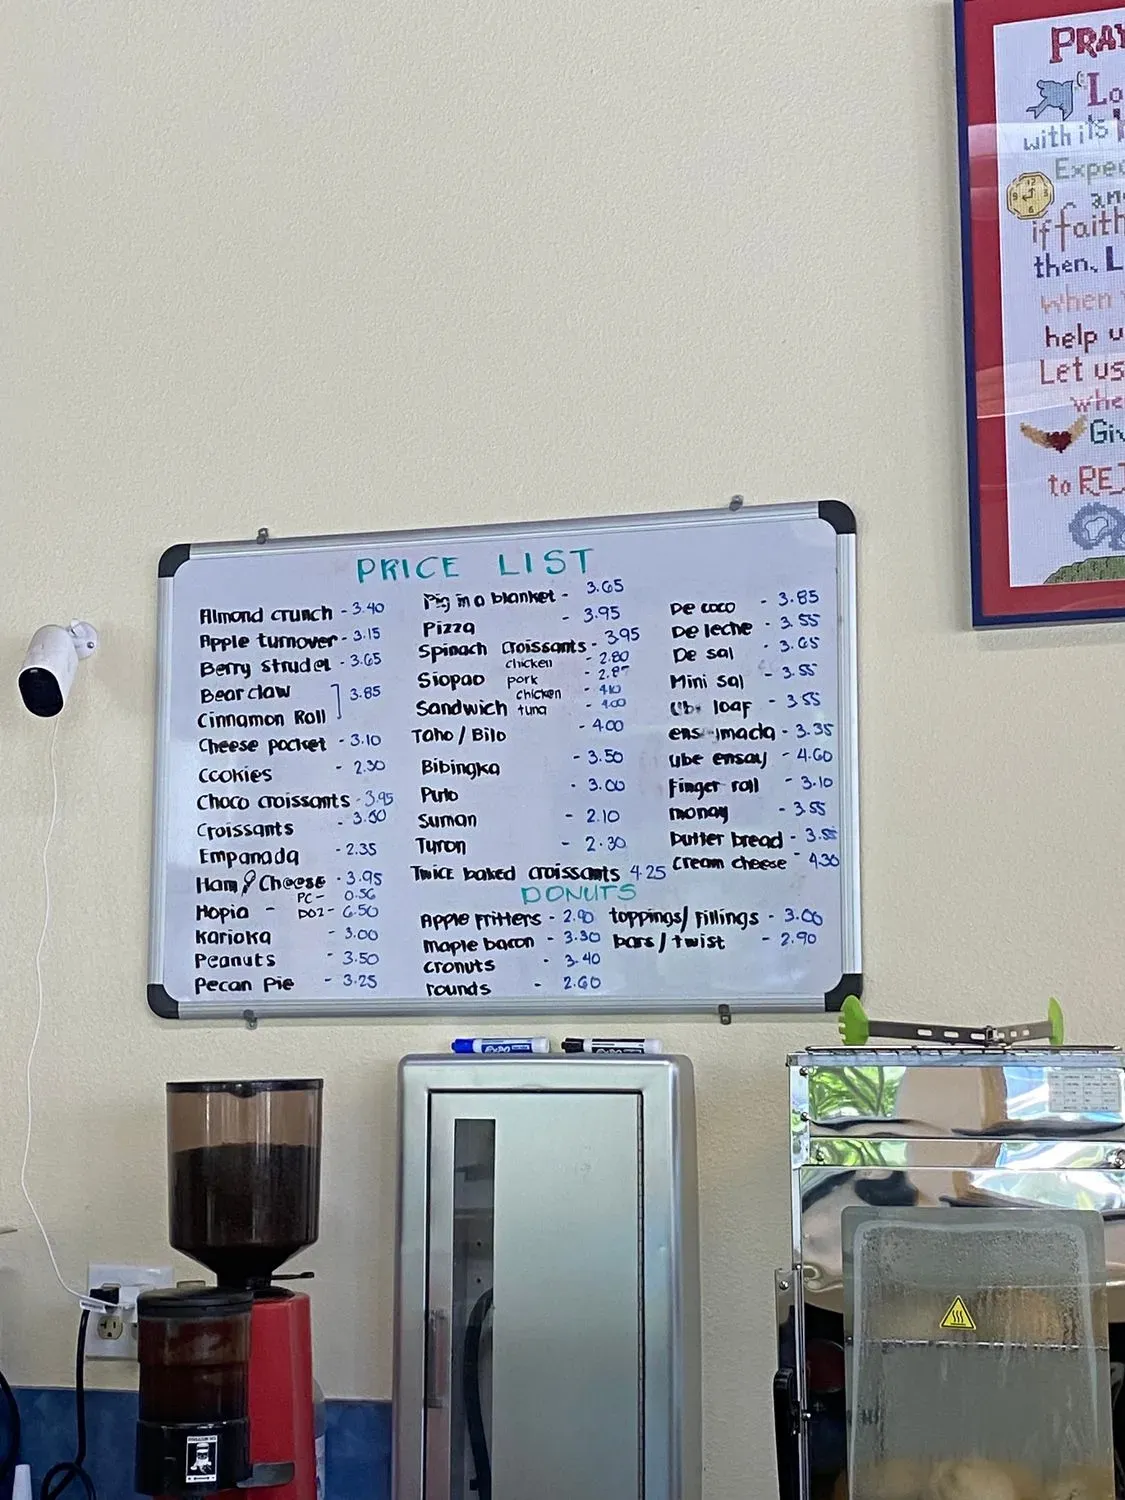 PRICE LIST
Almond crunch - 3.40
Apple turnover - 3.15
Berry strudel - 3.65
Bear claw
Cinnamon Roll ] 3.85
Cheese pocket - 3.10
Cookies - 2.30
Choco croissants - 3.95
Croissants - 3.50
Empanada - 2.35
Ham & Cheese - 3.95
Hopia - PC - 0.56
DOZ - 6.50
Karioka - 3.00
Peanuts - 3.50
Pecan Pie - 3.25
Pig in a blanket - 3.65
Pizza - 3.95
Spinach croissants - 3.95
Siopao chicken - 2.80
pork
Sandwich chicken - 4.10
tuna - 4.00
Taho / Bilo - 4.00
Bibingka - 3.50
Puto - 3.00
Suman - 2.10
Turon - 2.30
Twice baked croissants 4.25
De coco - 3.85
De leche - 3.55
De sal - 3.65
Mini sal - 3.55
loaf - 3.55
- 3.35
ube ensay - 4.60
Finger roll - 3.10
monay - 3.55
butter bread
cream cheese - 4.30
DONUTS
Apple Fritters - 2.90
maple bacon - 3.30
cronuts - 3.40
rounds - 2.60
toppings/ fillings - 3.00
bars / twist - 2.90
PRAY
"Lo
with its
Expec
if faith
then, L
when
help u
Let us
whe
Giv
to REJ
EXPO
EXPO